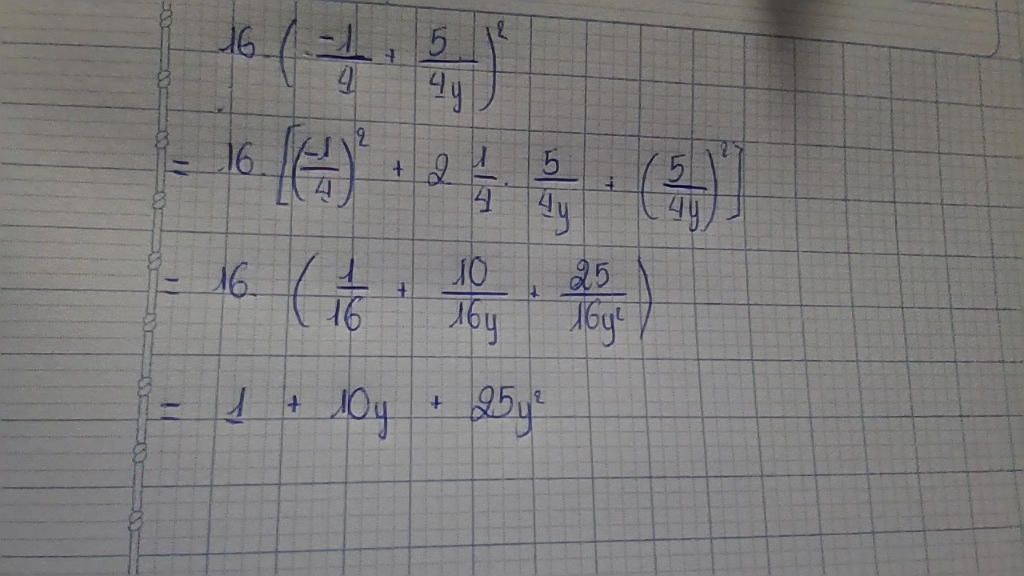 16 . ( -1/4 + 5/4y )²
= 16 . [ ( -1/4 )² + 2 1/4 . 5/4y + ( 5/4y )² ]
= 16 . ( 1/16 + 10/16y + 25/16y² )
= 1 + 10y + 25y²